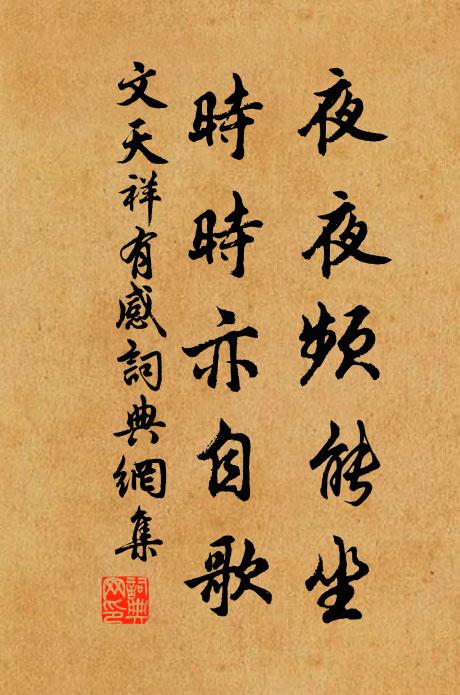 夜夜頻能坐
時時亦自歌
文天祥有感詞典網集
詞典网印